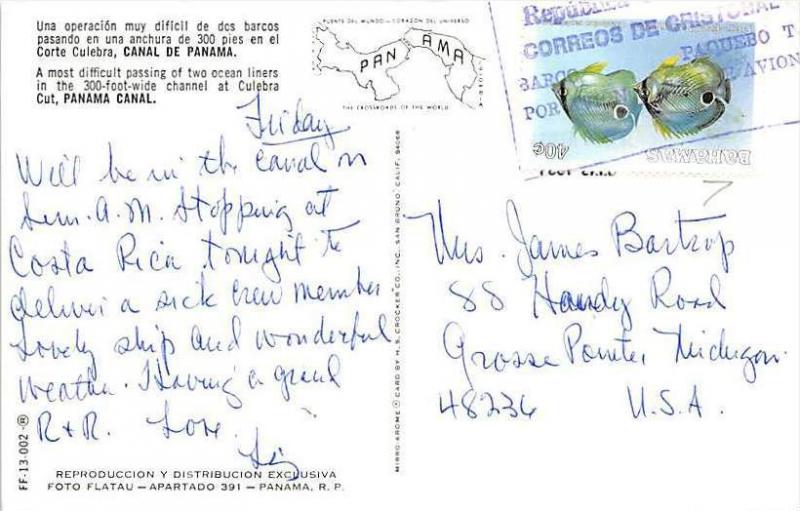 Una operación muy difícil de dos barcos
pasando en una anchura de 300 pies en el
Corte Culebra, CANAL DE PANAMA.
A most difficult passing of two ocean liners
in the 300-foot-wide channel at Culebra
Cut, PANAMA CANAL.
PUENTE DEL MUNDO — CORAZON DEL UNIVERSO
PANAMA
THE CROSSROADS OF THE WORLD
República
CORREOS DE CRISTOBAL
PAQUEBOT
BARCO
AVION
POR
40¢
BAHAMAS
Friday
Will be in the canal on
Sun. A.M. Stopping at
Costa Rica tonight to
deliver a sick crew member.
Lovely ship and wonderful
weather. Having a grand
R & R. Love.
Liz
Mrs. James Bartrop
88 Handy Road
Grosse Pointe, Michigan.
48236 U.S.A.
MIRRO-KROME ® CARD BY H. S. CROCKER CO., INC., SAN BRUNO, CALIF. 94066
FF-13-002-®
REPRODUCCION Y DISTRIBUCION EXCLUSIVA
FOTO FLATAU — APARTADO 391 — PANAMA, R. P.